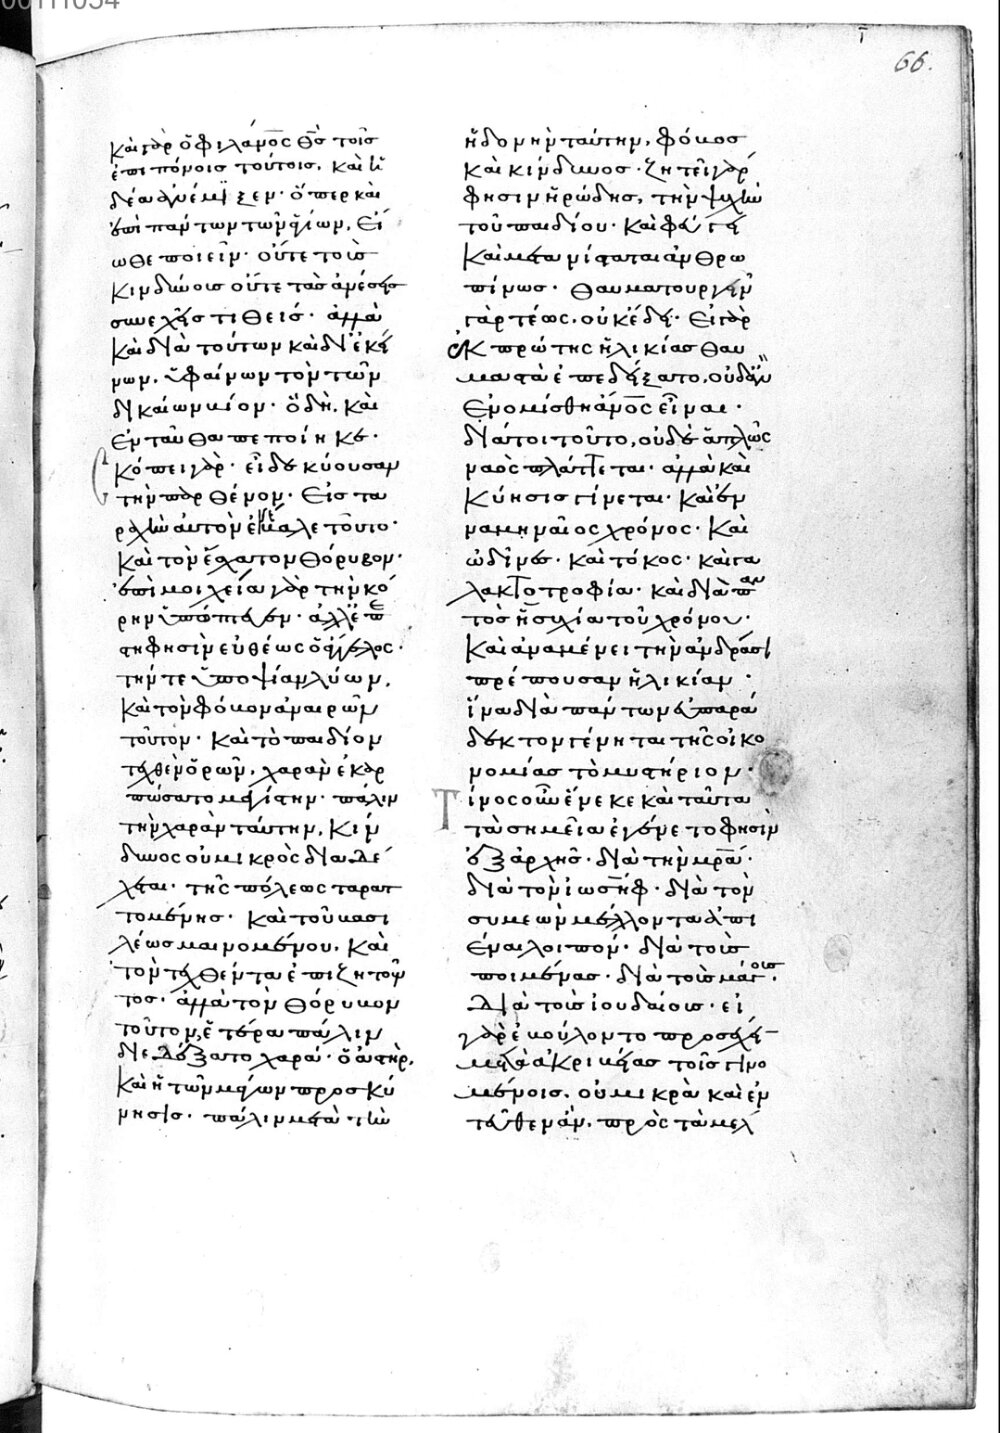 66.
καὶ γὰρ ὁ φιλάνος θς τοῖς
ἐπιπόνοις τούτοις, καὶ ἡ
δέα ἀνέμιξεν· ὅπερ καὶ
ἐπὶ πάντων τῶν ἁγίων, εἴ
ωθε ποιεῖν· οὔτε τοὺς
κινδύνους οὔτε τὰς ἀνέσεις
συνεχεῖς τιθεὶς· ἀλλὰ
καὶ διὰ τούτων καὶ δι' ἐκεί
νων, ὑφαίνων τὸν τῶν
δικαίων βίον· ὃ δὴ, καὶ
ἐνταῦθα πεποίηκε·
σκόπει γὰρ· εἶδε κύουσαν
τὴν παρθένον· εἰς τα
ραχὴν αὐτὸν ἐνέβαλε τοῦτο·
καὶ τὸν ἔσχατον θόρυβον·
ἐπὶ μοιχεία γὰρ τὴν κό
ρην ὑπώπτευεν· ἀλλ' ἐπέ
στη φησὶν εὐθέως ὁ ἄγγελος·
τήν τε ὑποψίαν λύων,
καὶ τὸν φόβον ἀναιρῶν
τοῦτον· καὶ τὸ παιδίον
τεχθὲν ὁρῶν, χαρὰν ἐκαρ
πώσατο μεγίστην· πάλιν
τὴν χαρὰν ταύτην, κίν
δυνος οὐ μικρὸς διαδέ
χεται· τῆς πόλεως ταραττ
τομένης· καὶ τοῦ βασι
λέως μαινομένου, καὶ
τὸν τεχθέντα ἐπιζητοῦν
τος· ἀλλὰ τὸν θόρυβον
τοῦτον, ἑτέρα πάλιν
διεδέξατο χαρά· ὁ ἀστὴρ,
καὶ ἡ τῶν μάγων προσκύ
νησις· πάλιν μετὰ τὴν
ἡδονὴν ταύτην, φόβος
καὶ κίνδυνος· ζητεῖ γὰρ
φησιν ἡρώδης, τὴν ψυχὴν
τοῦ παιδίου· καὶ φεύγει
καὶ μετανίσταται ἀνθρω
πίνως· θαυματουργεῖν
γὰρ τέως, οὐκ ἔδει· εἰ γὰρ
ἐκ πρώτης ἡλικίας θαύ
ματα ἐπεδείξατο, οὐδ' ἂν
ἐνομίσθη ἄνος εἶναι·
διάτοι τοῦτο, οὐδὲ ἁπλῶς
ναὸς πλάττεται· ἀλλὰ καὶ
κύησις γίνεται· καὶ ἐν
ναμηναῖος χρόνος· καὶ
ὠδῖνες· καὶ τόκος· καὶ γα
λακτοτροφία· καὶ διὰ παν
τὸς ἡσυχία τοῦ χρόνου·
καὶ ἀναμένει τὴν ἀνδράσι
πρέπουσαν ἡλικίαν·
ἵνα διὰ πάντων εὐπαρά
δεκτον γένηται τῆς οἰκο
νομίας τὸ μυστήριον·
Τίνος οὖν ἕνεκε καὶ ταῦτα
τὰ σημεῖα ἐγένετο φησὶν
ἐξ ἀρχῆς· διὰ τὴν μρα·
διὰ τὸν ἰωσὴφ· διὰ τὸν
συμεὼν μέλλοντα ἀπι
έναι λοιπόν· διὰ τοὺς
ποιμένας· διὰ τοὺς μάγους·
διὰ τοὺς ἰουδαίους· εἰ
γὰρ ἐβούλοντο προσέχειν
μετὰ ἀκριβείας τοῖς γινο
μένοις, οὐ μικρὰ καὶ ἐν
τεῦθεν ἂν, πρὸς τὰ μελ